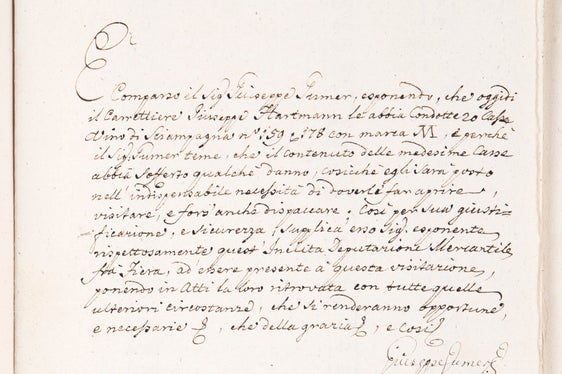 È Comparso il Sig Giuseppe Fumer, esponendo, che oggidì
il Carrettiere Giuseppe Hartmann le abbia Condotte 20 Casse
Vino di Sciampagna nº 159 a 178 con marca M, e perchè
il Sig Fumer teme, che il contenuto delle medesime Casse
abbia Sofferto qualche danno, cosicchè egli Sarà posto
nell'indispensabile necessità di doverle far aprire,
visitare, e fors'anche dispaccare; Così per Sua giusti=
=ficazione, e Sicurezza Supplica esso Sig esponente
rispettosamente quest'Inclita Deputazione Mercantile
frà Fiera, ad essere presente à questa visitazione,
ponendo in Atti la loro ritrovata con tutte quelle
ulteriori circostanze, che si renderanno opportune,
e necessarie, che della grazia, e Così
Giuseppe Fumer